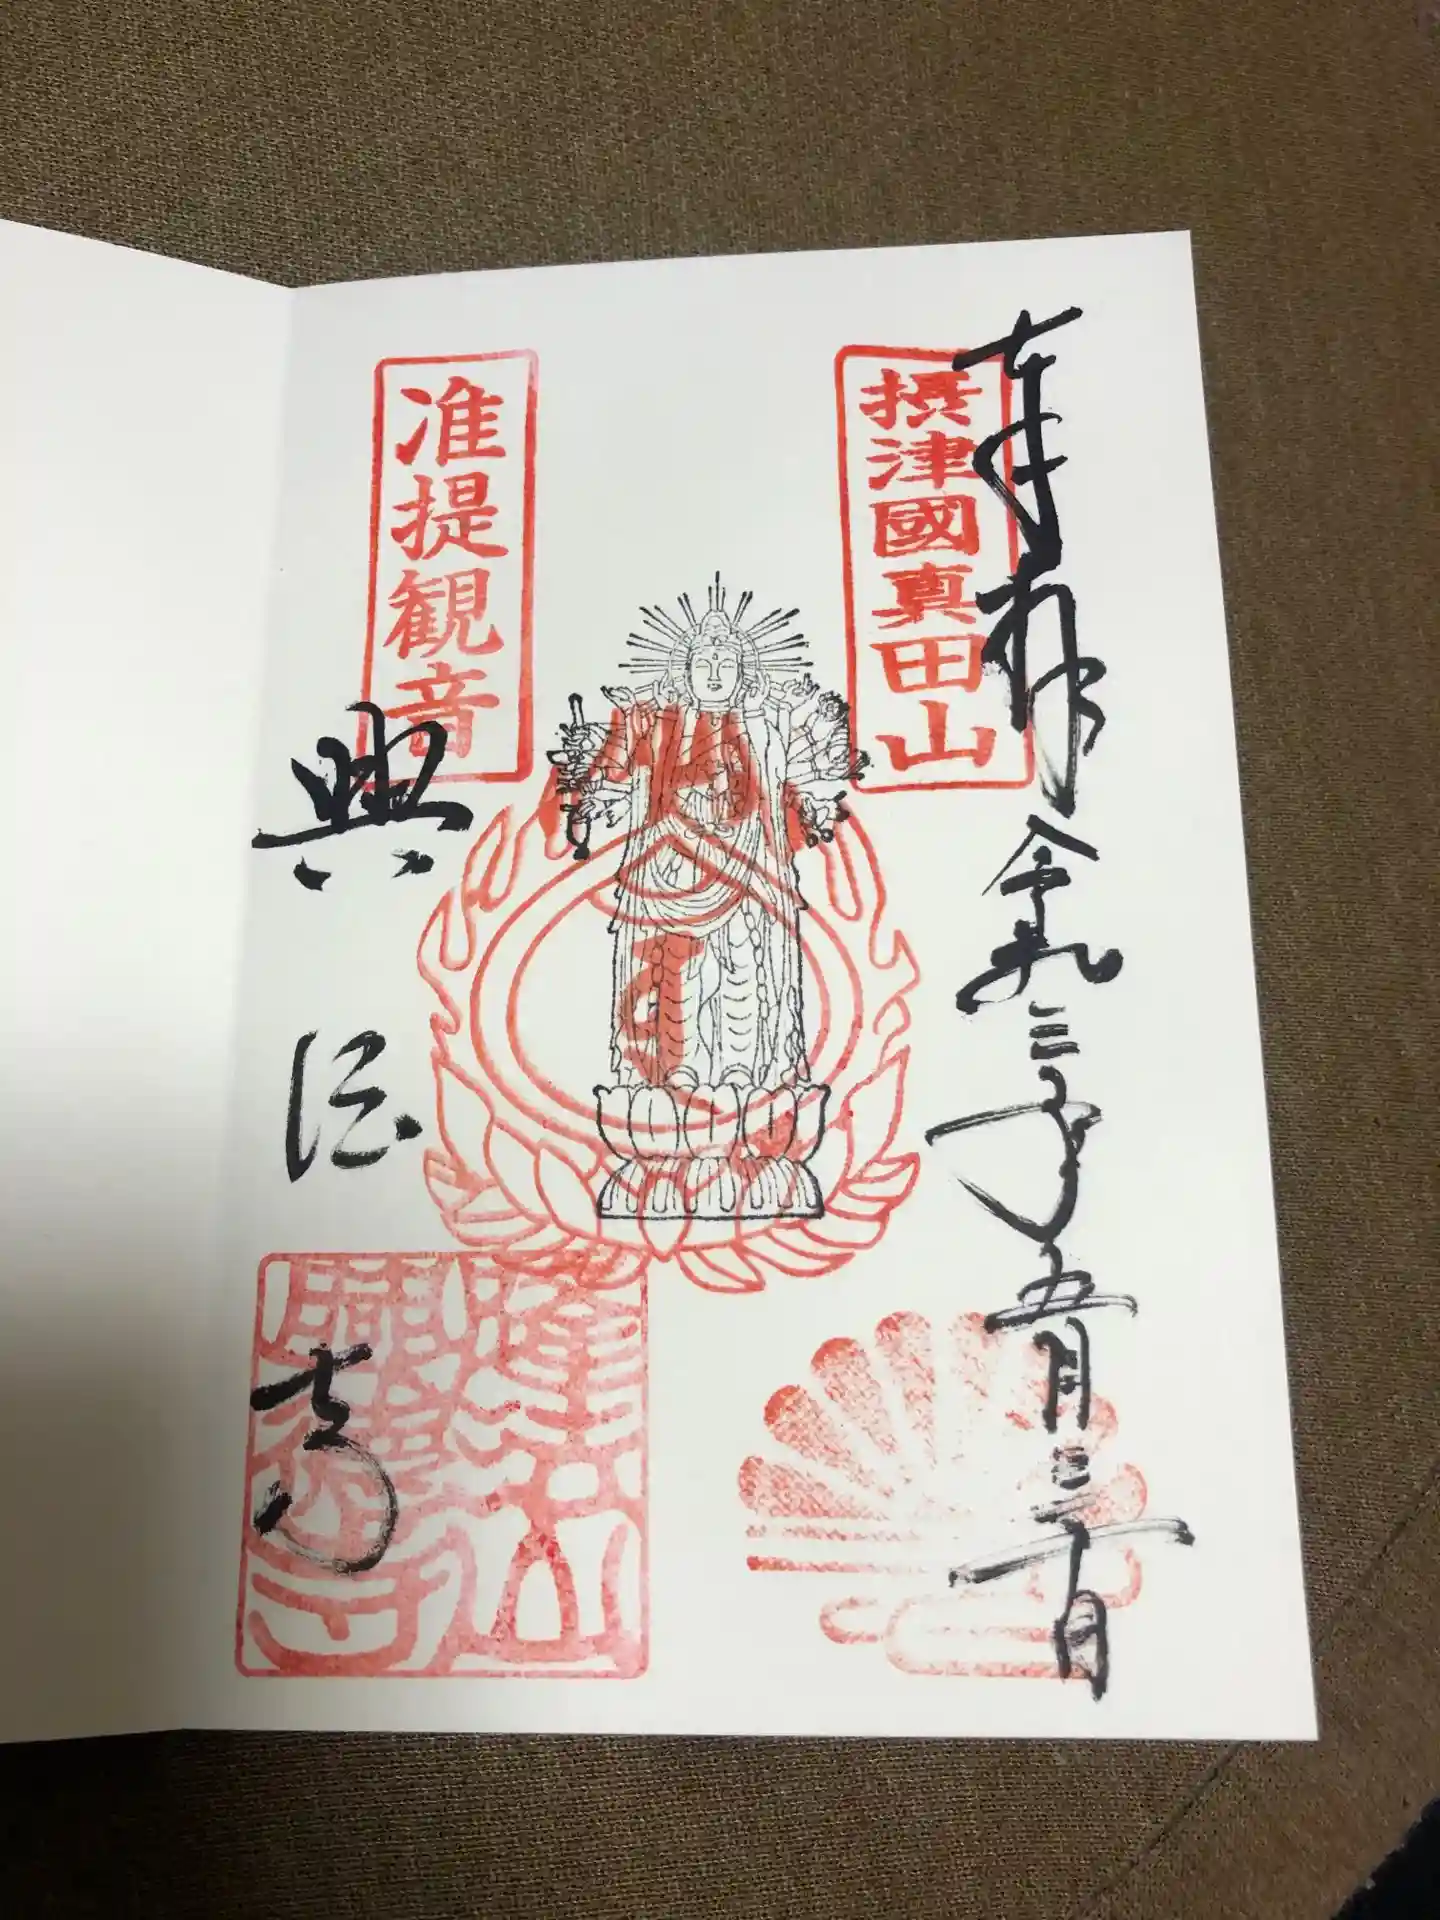 奉拝 令和三年五月三十日
摂津國真田山
准提観音
興徳寺
興徳寺